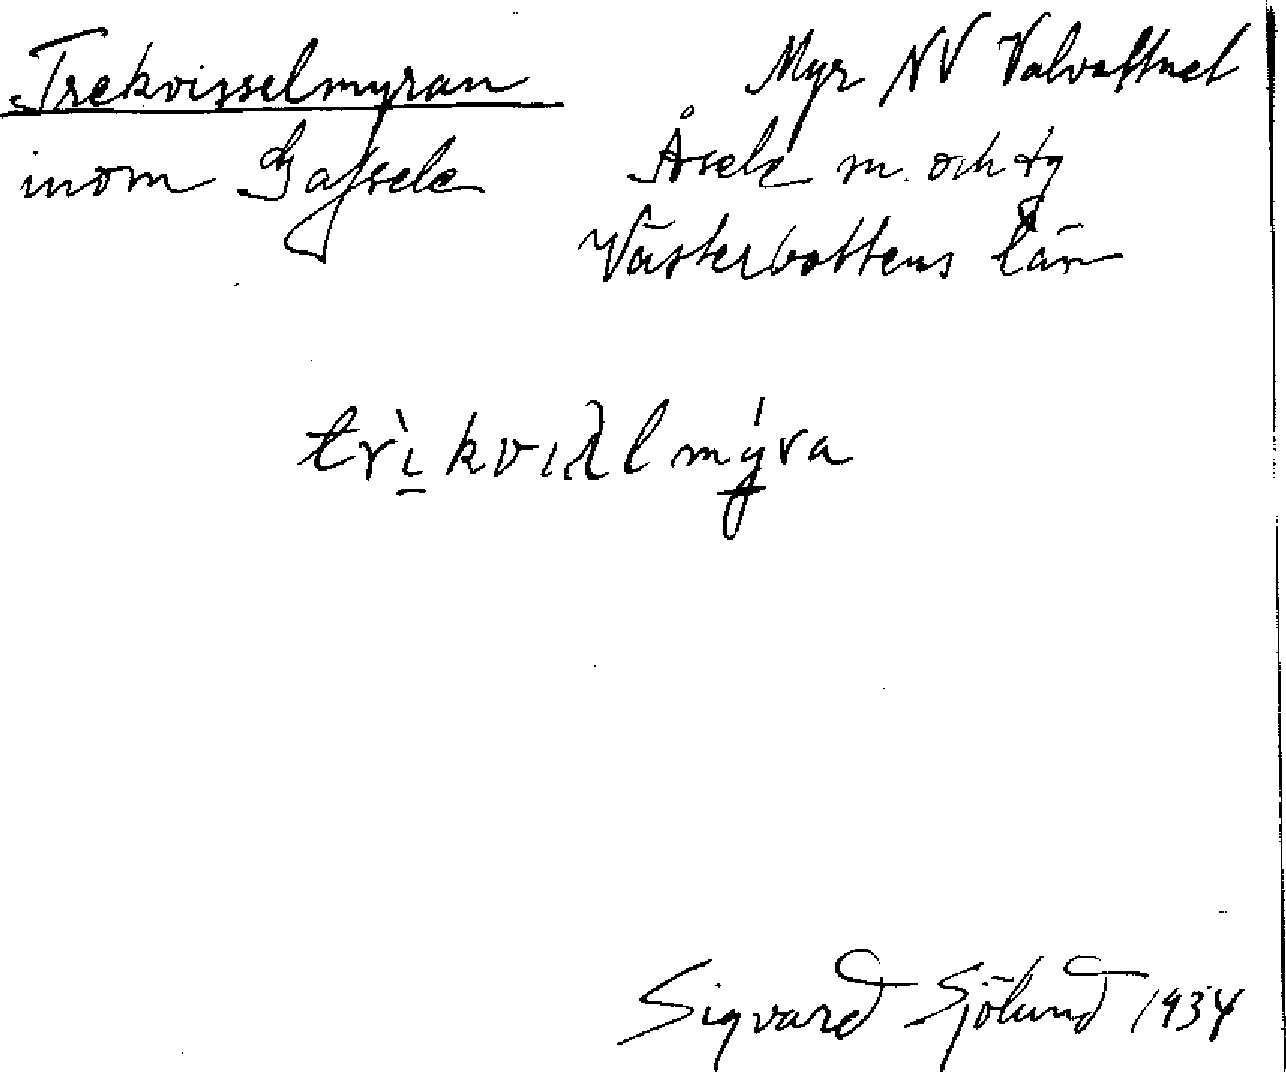 Trekvisselmyran
inom Gafsele
Myr NV Valvattnet
Åsele sn. och tg
Västerbottens län
Sigvard Sjölund 1934